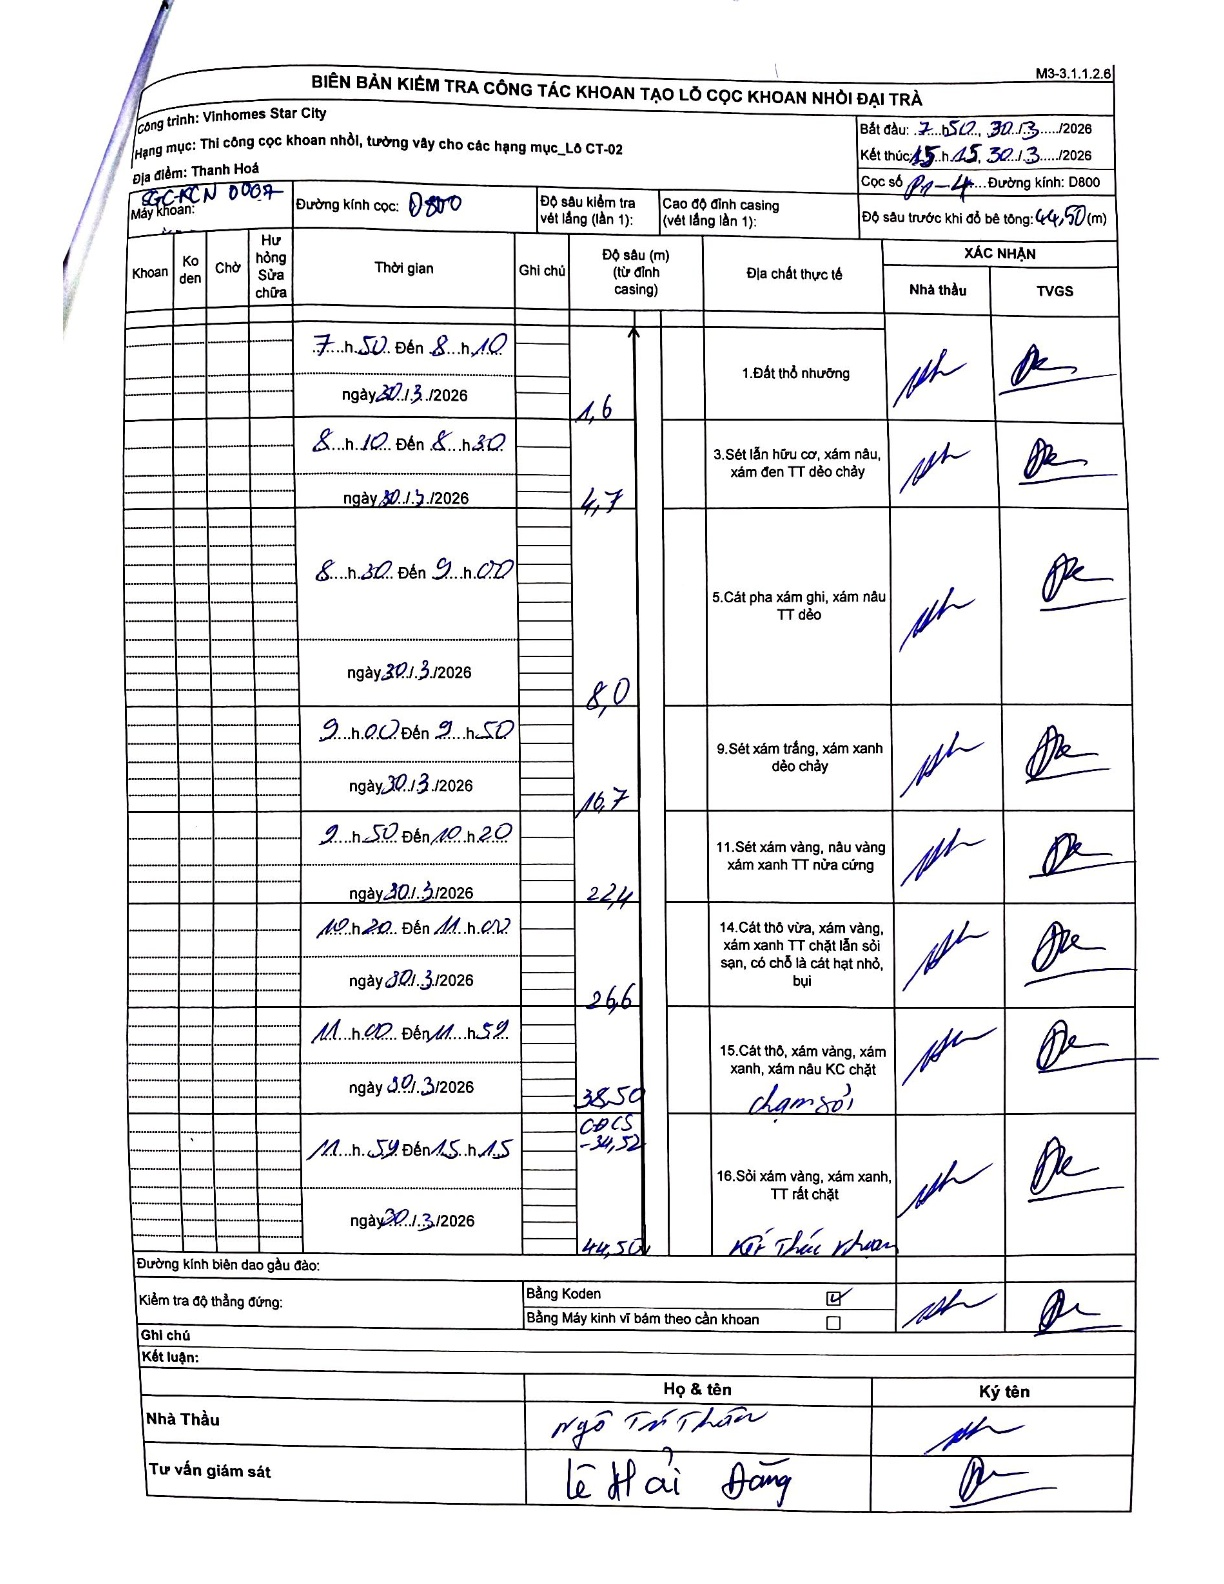 M3-3.1.1.2.6
BIÊN BẢN KIỂM TRA CÔNG TÁC KHOAN TẠO LỖ CỌC KHOAN NHỒI ĐẠI TRÀ
Công trình: Vinhomes Star City
Hạng mục: Thi công cọc khoan nhồi, tường vây cho các hạng mục_Lô CT-02
Địa điểm: Thanh Hoá
Bắt đầu: 7 h 50, 30/3/2026
Kết thúc 15 h 15, 30/3/2026
Cọc số P1-4 Đường kính: D800
Máy khoan:
Đường kính cọc: D800
Độ sâu kiểm tra vét lắng (lần 1):
Cao độ đỉnh casing (vét lắng lần 1):
Độ sâu trước khi đổ bê tông: 44,50 (m)
Khoan | Ko đen | Chờ | Hư hỏng Sửa chữa | Thời gian | Ghi chú | Độ sâu (m) (từ đỉnh casing) | Địa chất thực tế | XÁC NHẬN
Nhà thầu | TVGS
7 h 50 Đến 8 h 10
ngày 30/3/2026
1,6
1.Đất thổ nhưỡng
8 h 10 Đến 8 h 30
ngày 30/3/2026
4,7
3.Sét lẫn hữu cơ, xám nâu,
xám đen TT dẻo chảy
8 h 30 Đến 9 h 00
ngày 30/3/2026
8,0
5.Cát pha xám ghi, xám nâu
TT dẻo
9 h 00 Đến 9 h 50
ngày 30/3/2026
16,7
9.Sét xám trắng, xám xanh
dẻo chảy
9 h 50 Đến 10 h 20
ngày 30/3/2026
22,4
11.Sét xám vàng, nâu vàng
xám xanh TT nửa cứng
10 h 20 Đến 11 h 00
ngày 30/3/2026
26,6
14.Cát thô vừa, xám vàng,
xám xanh TT chặt lẫn sỏi
sạn, có chỗ là cát hạt nhỏ,
bụi
11 h 00 Đến 11 h 59
ngày 30/3/2026
38,50
15.Cát thô, xám vàng, xám
xanh, xám nâu KC chặt
chạm sỏi
CĐCS
-34,52
11 h 59 Đến 15 h 15
ngày 30/3/2026
44,50
16.Sỏi xám vàng, xám xanh,
TT rất chặt
Kết thúc khoan
Đường kính biên dao gầu đào:
Kiểm tra độ thẳng đứng:
Bằng Koden
Bằng Máy kinh vĩ bám theo cần khoan
Ghi chú
Kết luận:
Họ & tên | Ký tên
Nhà Thầu
Ngô Trí Thân
Tư vấn giám sát
Lê Hải Đăng